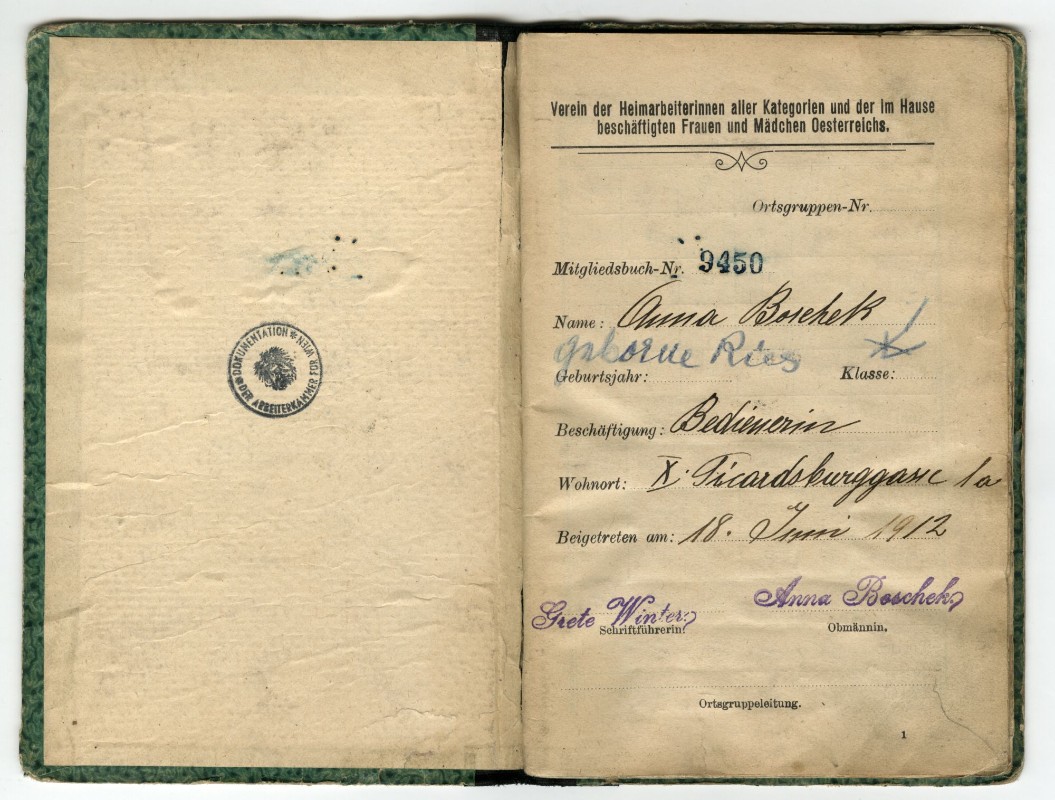 DOKUMENTATION * DER ARBEITERKAMMER FÜR WIEN *
Verein der Heimarbeiterinnen aller Kategorien und der im Hause
beschäftigten Frauen und Mädchen Oesterreichs.
Ortsgruppen-Nr.
Mitgliedsbuch-Nr. 9450
Name: Anna Boschek
geborne Ries
Geburtsjahr: Klasse:
Beschäftigung: Bedienerin
Wohnort: X. Ricardsburggasse 1a
Beigetreten am: 18. Juni 1912
Grete Winter Anna Boschek
Schriftführerin. Obmännin.
Ortsgruppeleitung.
1